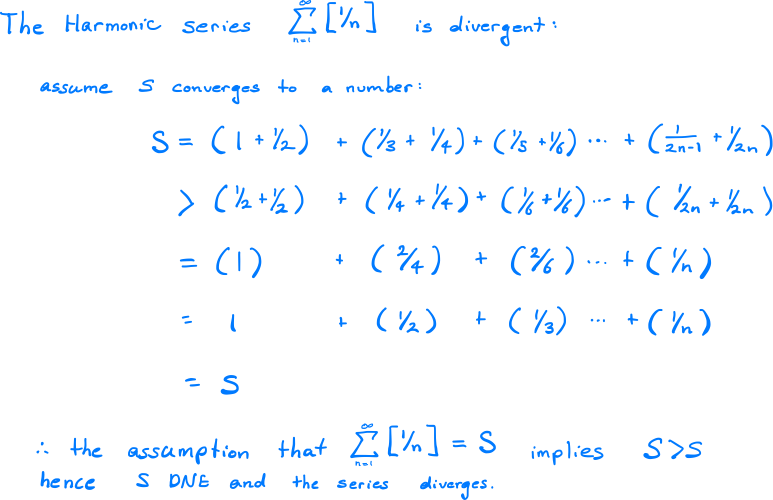 The Harmonic series ∞∑n=1 [1/n] is divergent:
assume S converges to a number:
S = (1 + 1/2) + (1/3 + 1/4) + (1/5 + 1/6) ··· + (1/2n-1 + 1/2n)
> (1/2 + 1/2) + (1/4 + 1/4) + (1/6 + 1/6) ··· + (1/2n + 1/2n)
= (1) + (2/4) + (2/6) ... + (1/n)
= 1 + (1/2) + (1/3) ... + (1/n)
= S
∴ the assumption that ∞∑n=1 [1/n] = S implies S>S
hence S DNE and the series diverges.